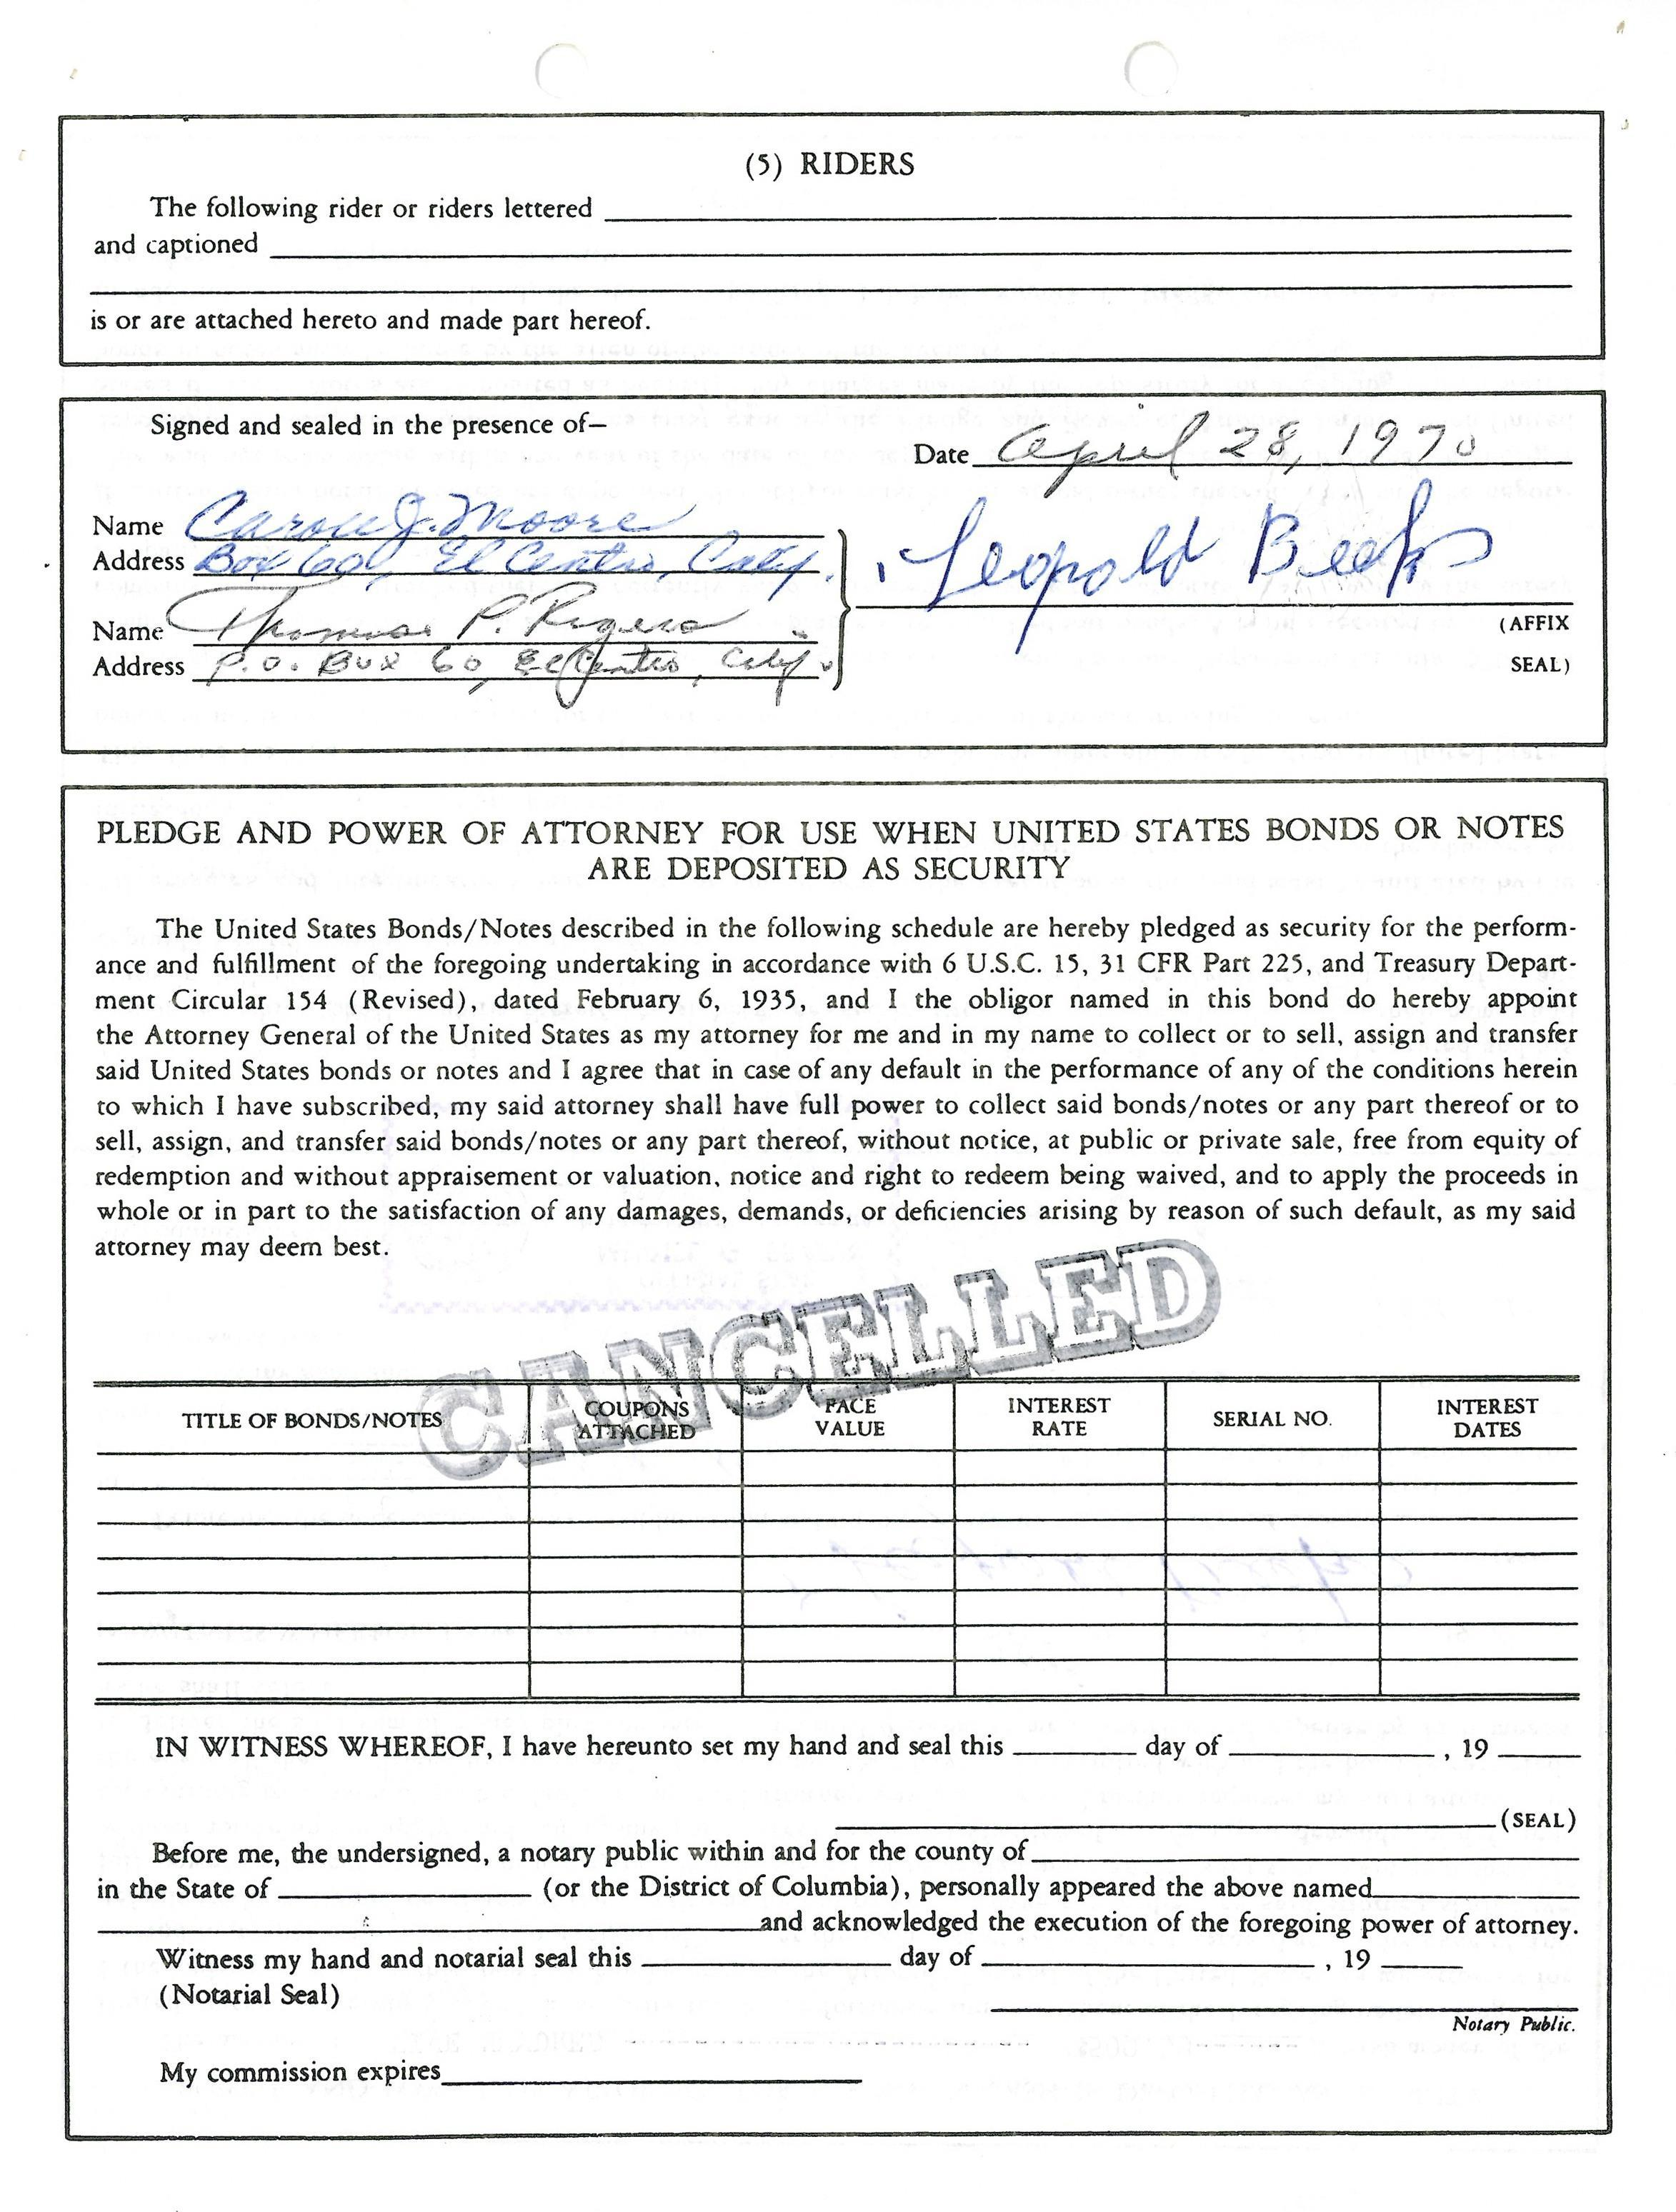 (5) RIDERS
The following rider or riders lettered
and captioned
is or are attached hereto and made part hereof.
Signed and sealed in the presence of—
Date April 28, 1970
Name Carole J. Moore
Address Box 60, El Centro, Calif.
Leopold Beeks
Name Thomas P. Rogers
Address P.O. Box 60, El Centro, Calif.
(AFFIX
SEAL)
PLEDGE AND POWER OF ATTORNEY FOR USE WHEN UNITED STATES BONDS OR NOTES
ARE DEPOSITED AS SECURITY
The United States Bonds/Notes described in the following schedule are hereby pledged as security for the perform-
ance and fulfillment of the foregoing undertaking in accordance with 6 U.S.C. 15, 31 CFR Part 225, and Treasury Depart-
ment Circular 154 (Revised), dated February 6, 1935, and I the obligor named in this bond do hereby appoint
the Attorney General of the United States as my attorney for me and in my name to collect or to sell, assign and transfer
said United States bonds or notes and I agree that in case of any default in the performance of any of the conditions herein
to which I have subscribed, my said attorney shall have full power to collect said bonds/notes or any part thereof or to
sell, assign, and transfer said bonds/notes or any part thereof, without notice, at public or private sale, free from equity of
redemption and without appraisement or valuation, notice and right to redeem being waived, and to apply the proceeds in
whole or in part to the satisfaction of any damages, demands, or deficiencies arising by reason of such default, as my said
attorney may deem best.
CANCELLED
TITLE OF BONDS/NOTES COUPONS ATTACHED FACE VALUE INTEREST RATE SERIAL NO. INTEREST DATES
IN WITNESS WHEREOF, I have hereunto set my hand and seal this day of , 19
(SEAL)
Before me, the undersigned, a notary public within and for the county of
in the State of (or the District of Columbia), personally appeared the above named
and acknowledged the execution of the foregoing power of attorney.
Witness my hand and notarial seal this day of , 19
(Notarial Seal)
Notary Public.
My commission expires